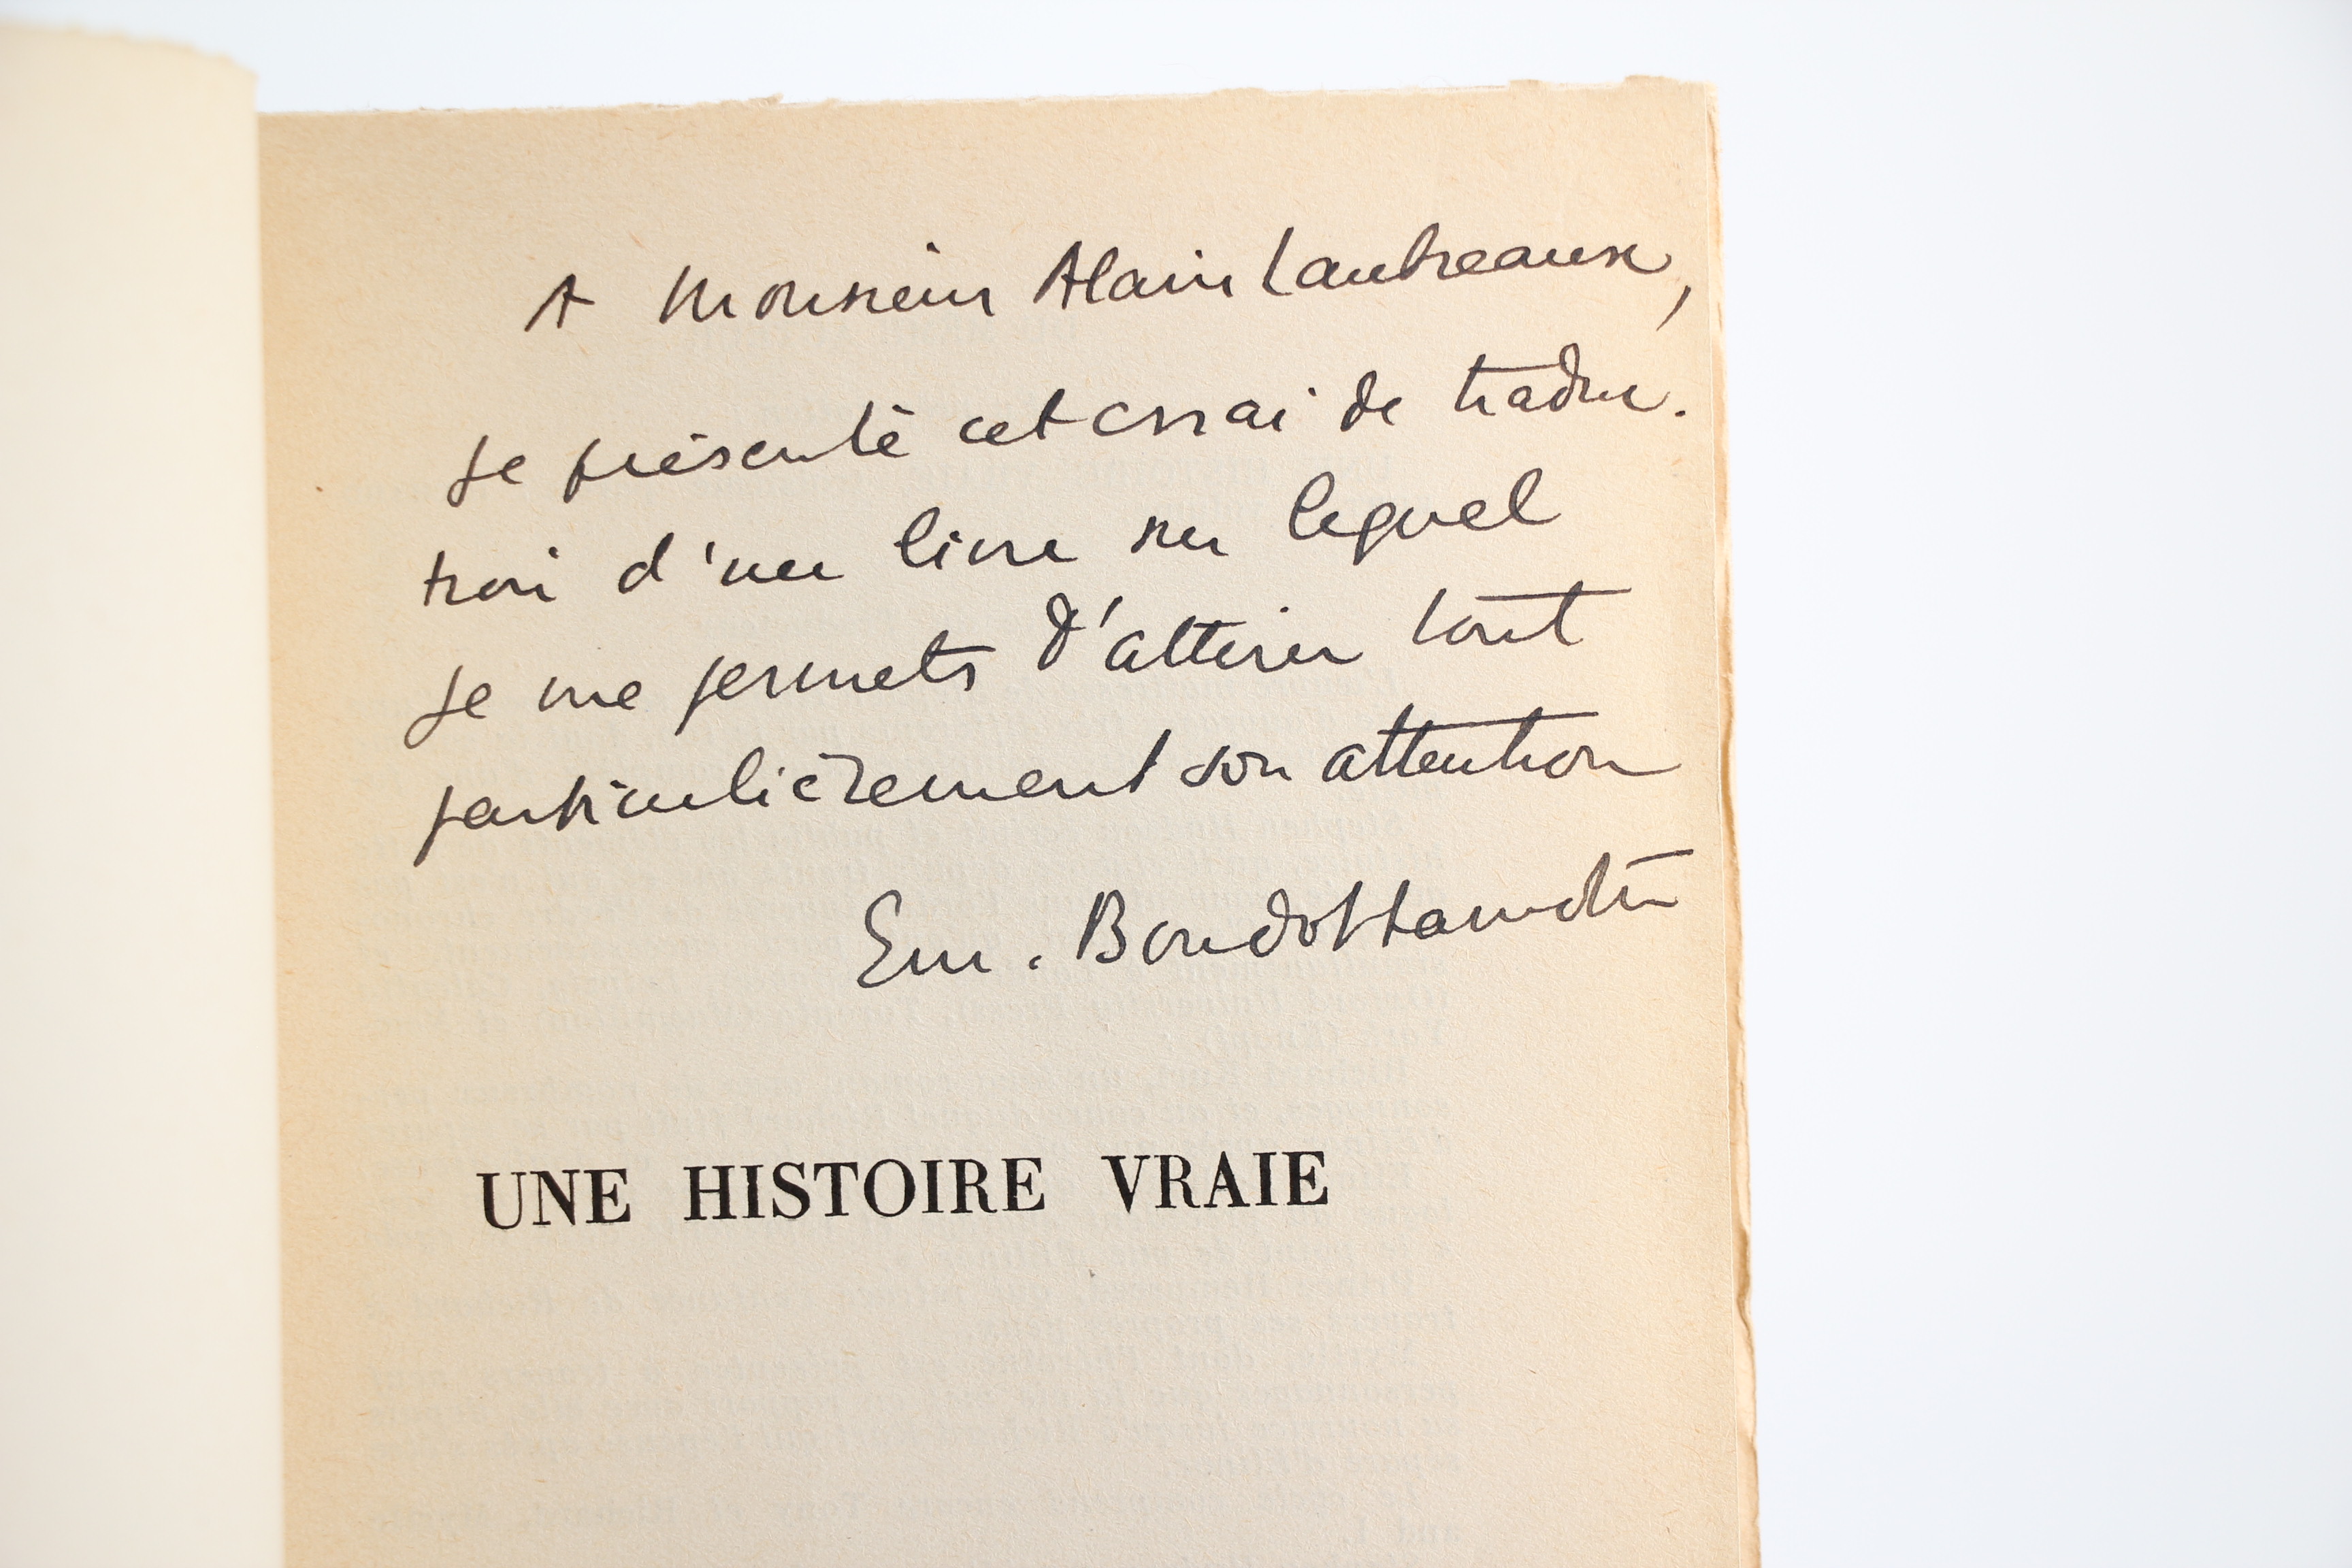 A Monsieur Alain Laubreaux,
je présente cet essai de traduc-
tion d'un livre sur lequel
je me permets d'attirer tout
particulièrement son attention
Em. Boudot-Lamotte
UNE HISTOIRE VRAIE